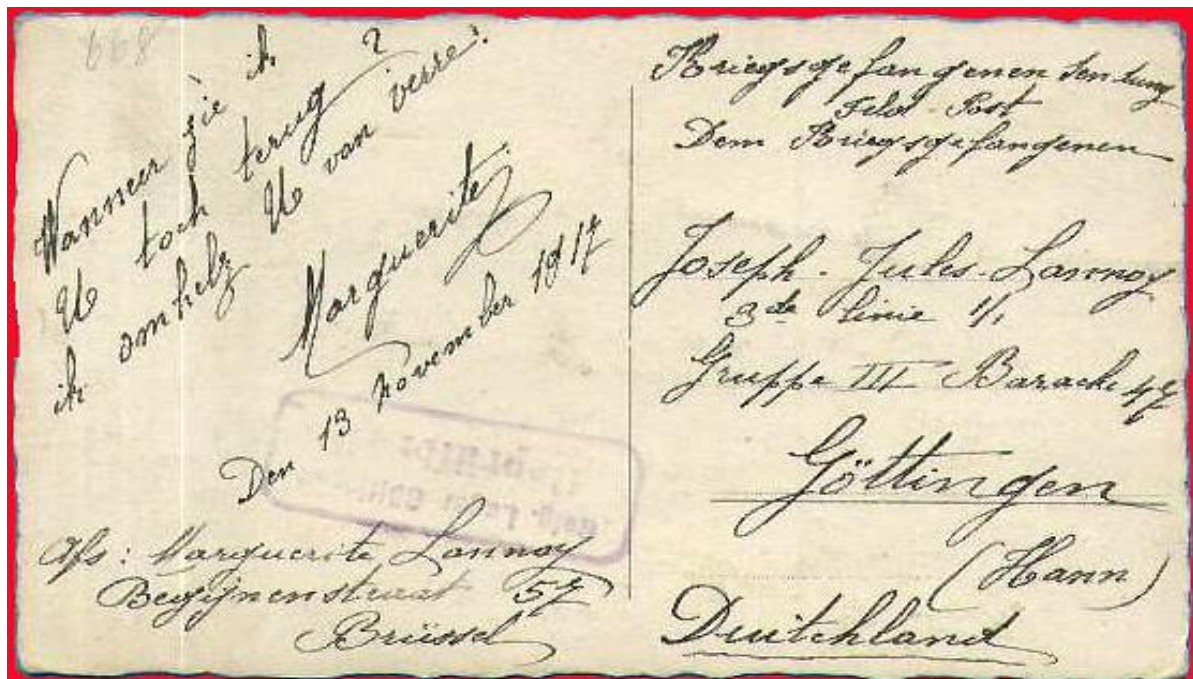 668
Wanneer zie ik
U toch terug ?
ik omhelz U van verre.
Marguerite.
Den 13 november 1917
Afs: Marguerite Lannoy
Begijnenstraat 57
Brüssel
Kriegsgefangenen Sendung
Feld-Post
Dem Kriegsgefangenen
Joseph-Jules-Lannoy
3de linie 1/1
Gruppe III Baracke 47
Göttingen
(Hann)
Duitchland